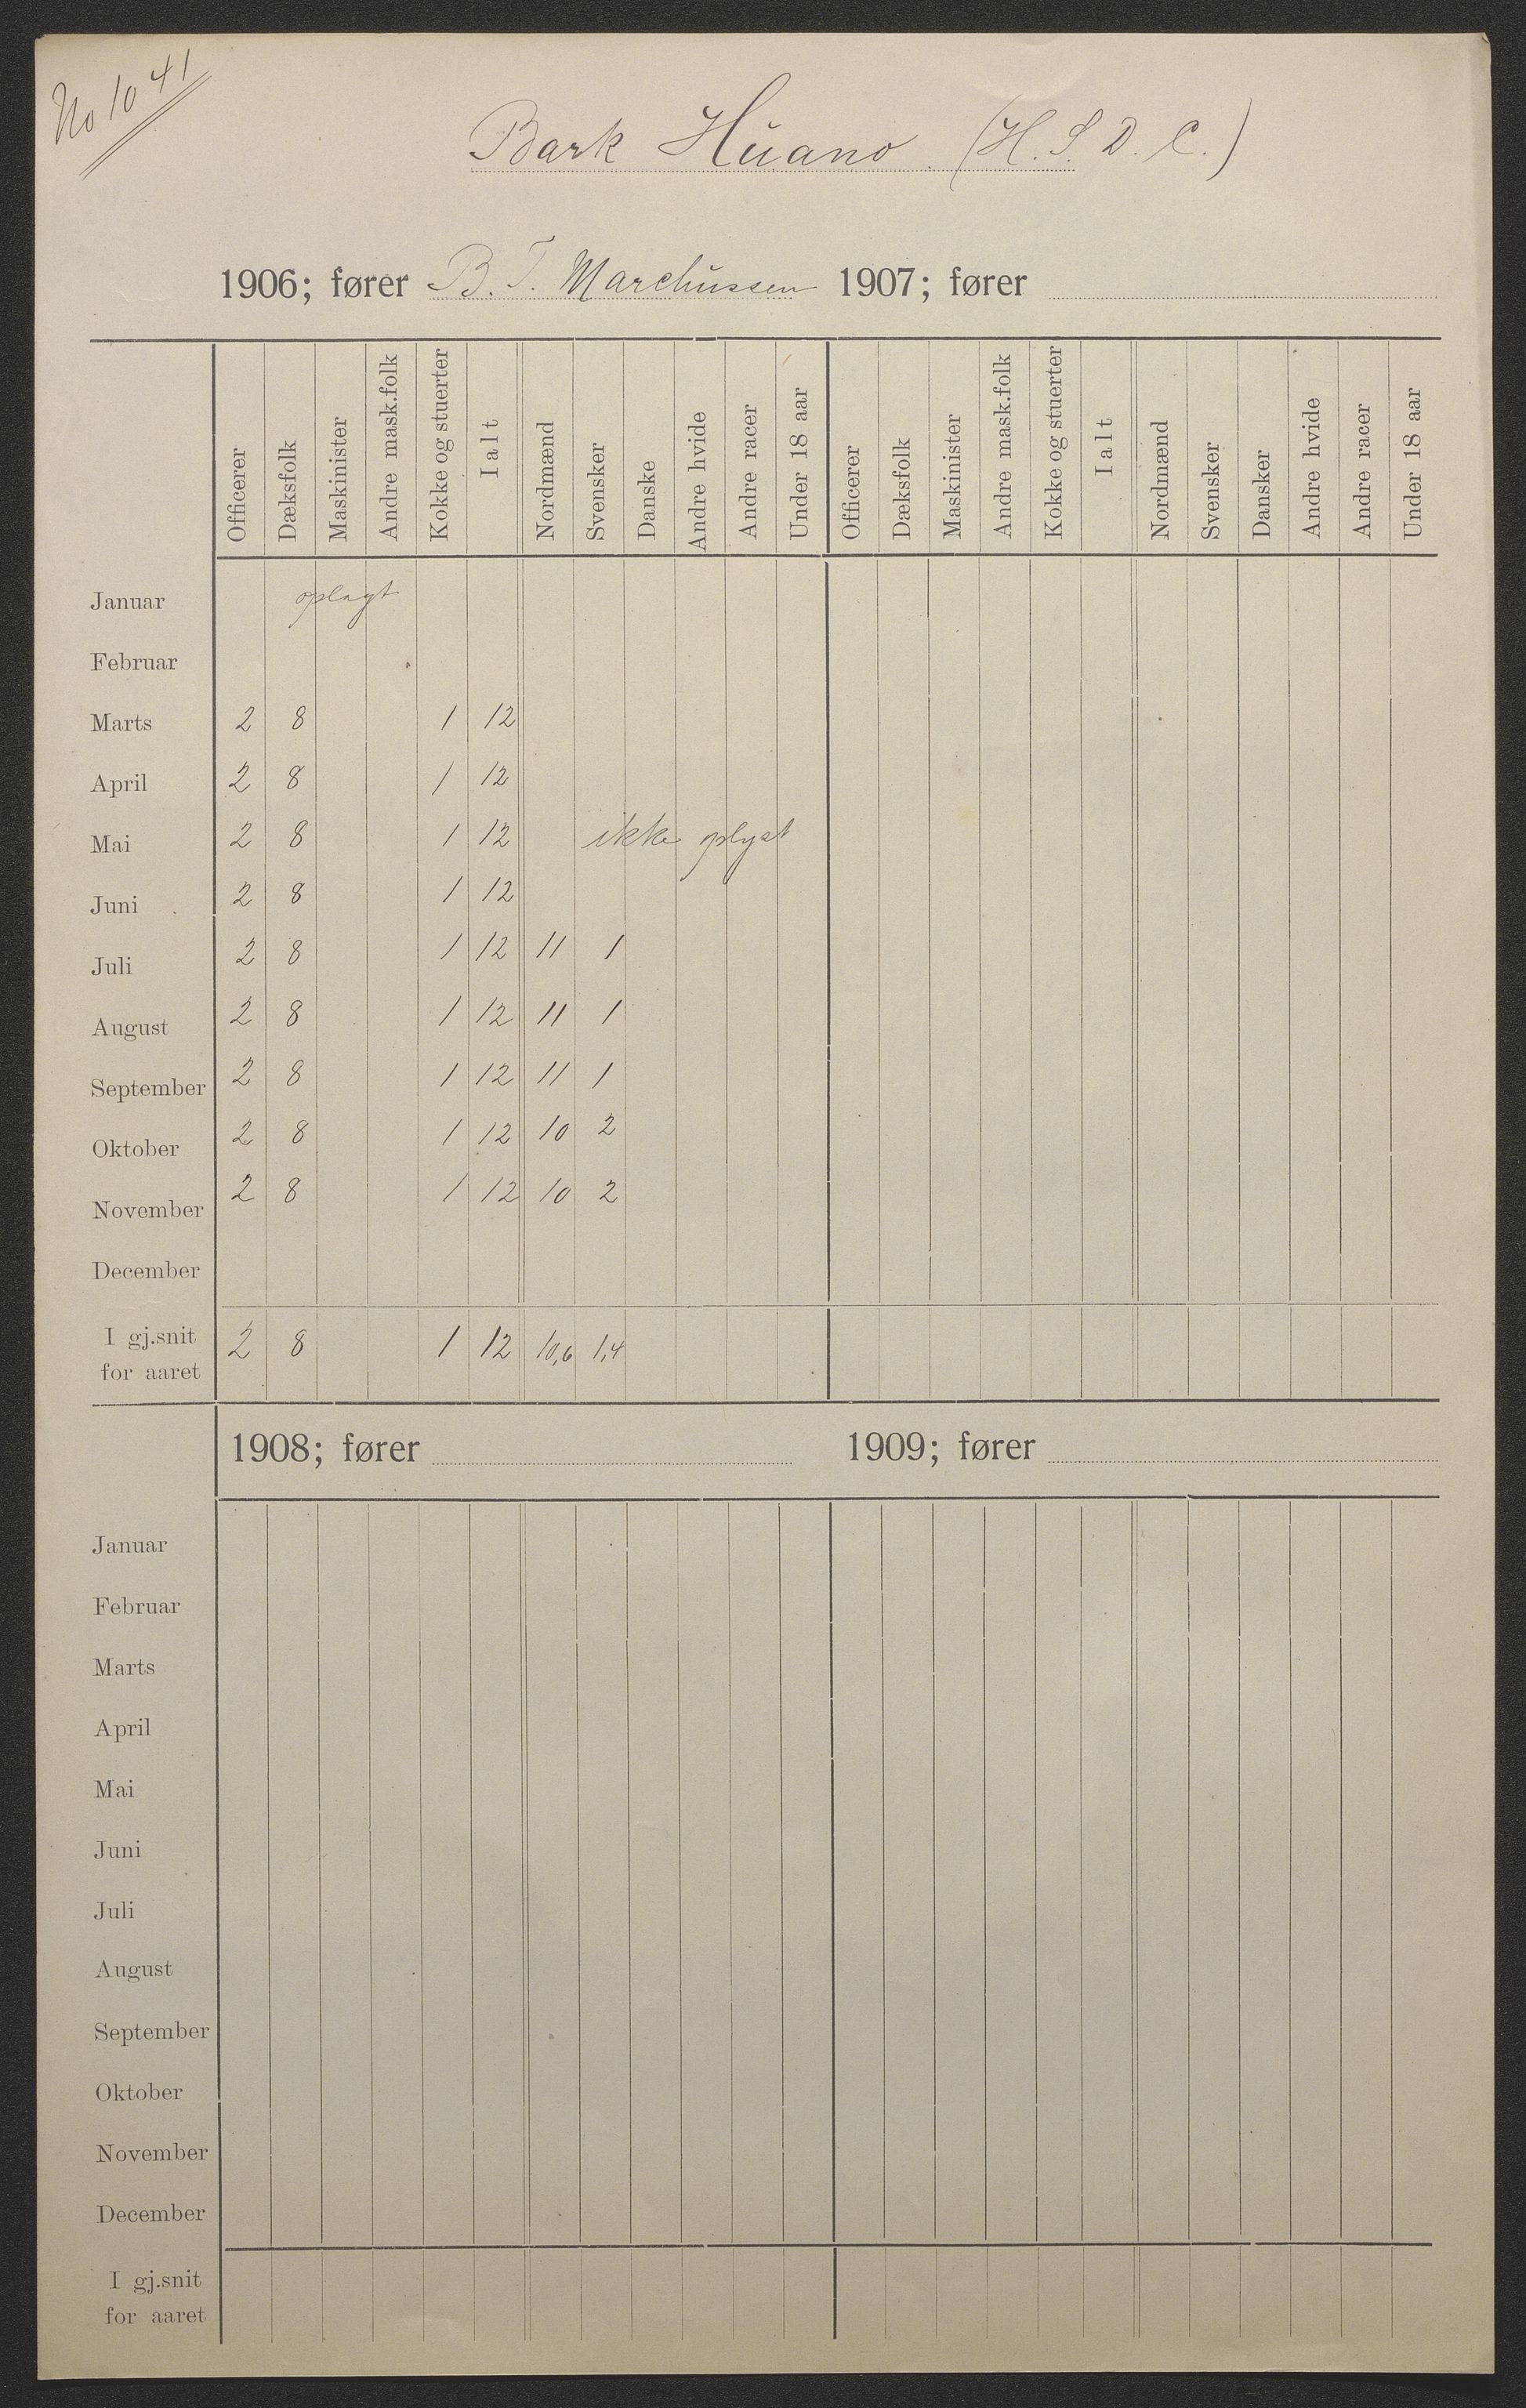 No 1041
Bark Huano. (H. S. D. C.)
1906; fører B. T. Marchussen 1907; fører
Officerer Dæksfolk Maskinister Andre mask.folk Kokke og stuerter Ialt Nordmænd Svensker Danske Andre hvide Andre racer Under 18 aar Officerer Dæksfolk Maskinister Andre mask.folk Kokke og stuerter Ialt Nordmænd Svensker Dansker Andre hvide Andre racer Under 18 aar
Januar oplagt
Februar
Marts 2 8 1 12
April 2 8 1 12
Mai 2 8 1 12 ikke oplyst
Juni 2 8 1 12
Juli 2 8 1 12 11 1
August 2 8 1 12 11 1
September 2 8 1 12 11 1
Oktober 2 8 1 12 10 2
November 2 8 1 12 10 2
December
I gj.snit
for aaret 2 8 1 12 10,6 1,4
1908; fører 1909; fører
Januar
Februar
Marts
April
Mai
Juni
Juli
August
September
Oktober
November
December
I gj.snit
for aaret